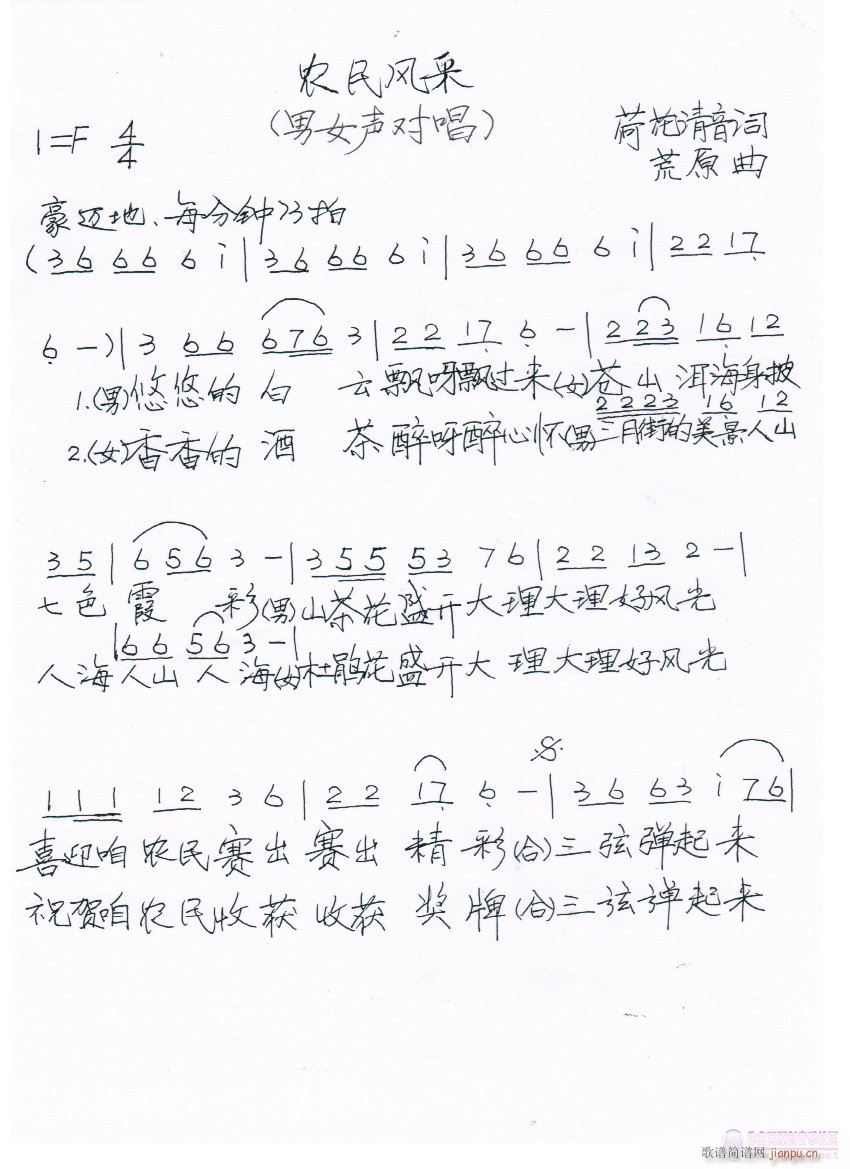 农民风采
(男女声对唱)
1=F 4/4
荷花清音词
荒原 曲
豪迈地、每分钟73拍
(36 66 6 i|36 66 6 i|36 66 6 i|22 17
6 -)|3 66 676 3|22 17 6 -|2 223 16 12
1.(男)悠悠的 白 云飘呀飘过来(女)苍山洱海身披
2223 16 12
2.(女)香香的 酒 茶醉呀醉心怀(男)三月街的美景人山
35|6 56 3 -|3 55 53 76|22 13 2 -|
七色霞 彩(男)山茶花盛开大理大理好风光
|66 563 -|
人海人山人海(女)杜鹃花盛开大理大理好风光
111 12 36|22 17 6 -|36 63 i 76|
喜迎咱农民赛出赛出精彩(合)三弦弹起来
祝贺咱农民收获收获奖牌(合)三弦弹起来
歌谱简谱网 jianpu.cn